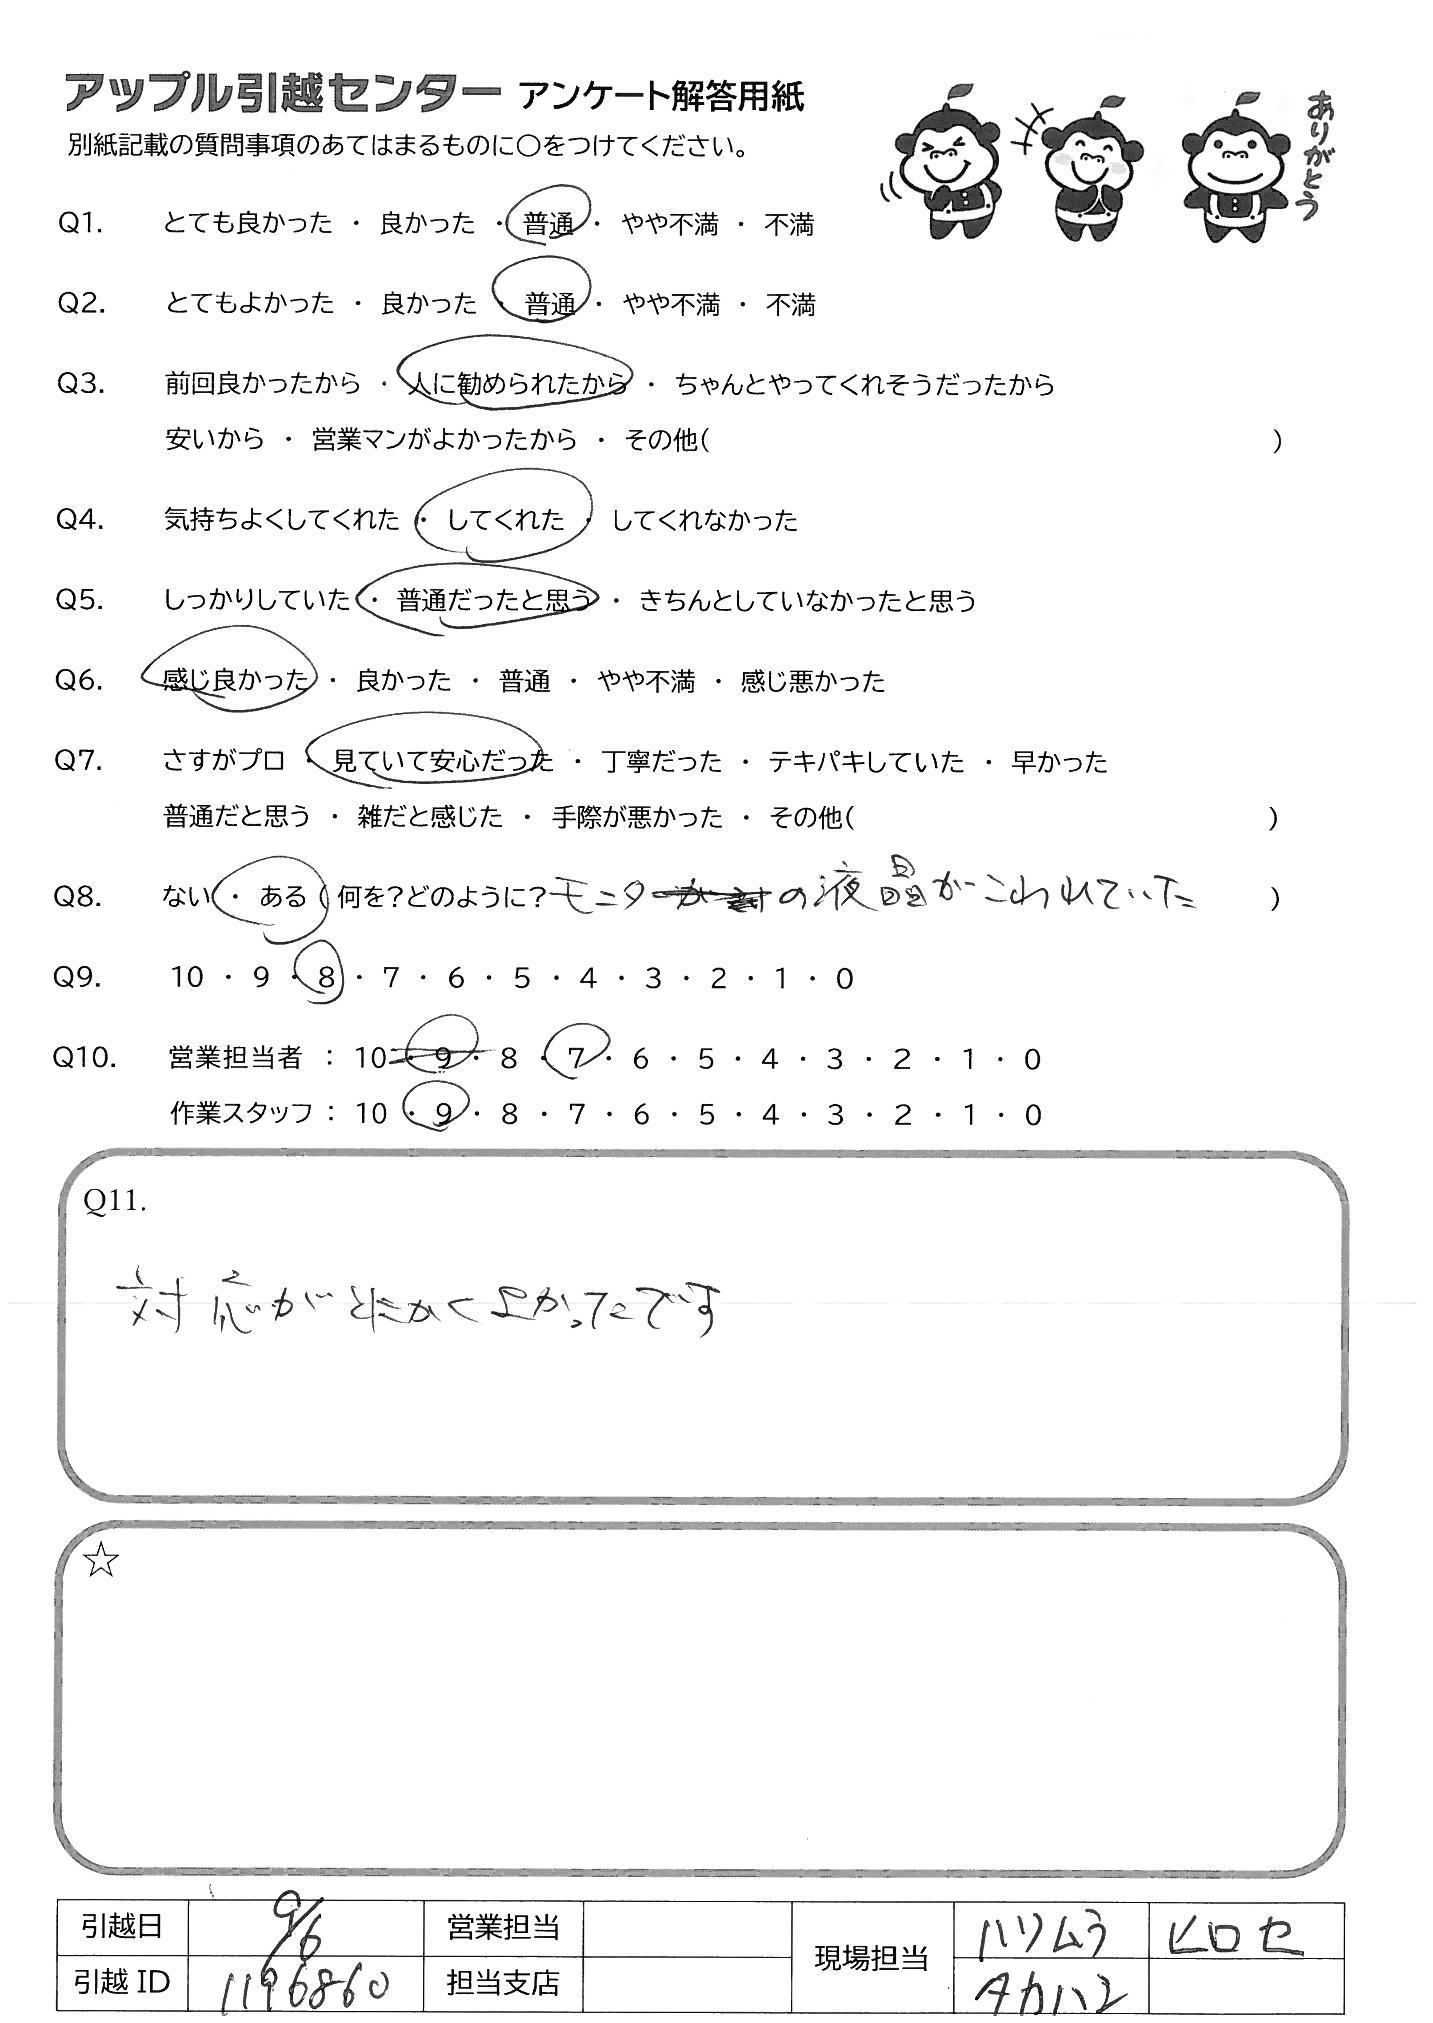 アップル引越センター アンケート解答用紙
別紙記載の質問事項のあてはまるものに〇をつけてください。
ありがとう
Q1. とても良かった ・ 良かった ・ 普通 ・ やや不満 ・ 不満
Q2. とてもよかった ・ 良かった ・ 普通 ・ やや不満 ・ 不満
Q3. 前回良かったから ・ 人に勧められたから ・ ちゃんとやってくれそうだったから
安いから ・ 営業マンがよかったから ・ その他( )
Q4. 気持ちよくしてくれた ・ してくれた ・ してくれなかった
Q5. しっかりしていた ・ 普通だったと思う ・ きちんとしていなかったと思う
Q6. 感じ良かった ・ 良かった ・ 普通 ・ やや不満 ・ 感じ悪かった
Q7. さすがプロ ・ 見ていて安心だった ・ 丁寧だった ・ テキパキしていた ・ 早かった
普通だと思う ・ 雑だと感じた ・ 手際が悪かった ・ その他( )
Q8. ない ・ ある ( 何を?どのように? モニターの液晶がこわれていた )
Q9. 10 ・ 9 ・ 8 ・ 7 ・ 6 ・ 5 ・ 4 ・ 3 ・ 2 ・ 1 ・ 0
Q10. 営業担当者 : 10 ・ 9 ・ 8 ・ 7 ・ 6 ・ 5 ・ 4 ・ 3 ・ 2 ・ 1 ・ 0
作業スタッフ : 10 ・ 9 ・ 8 ・ 7 ・ 6 ・ 5 ・ 4 ・ 3 ・ 2 ・ 1 ・ 0
Q11.
対応がとにかくよかったです
☆
引越日 9/6 営業担当 現場担当 ハリムラ ヒロセ
引越ID 1196860 担当支店 タカハシ